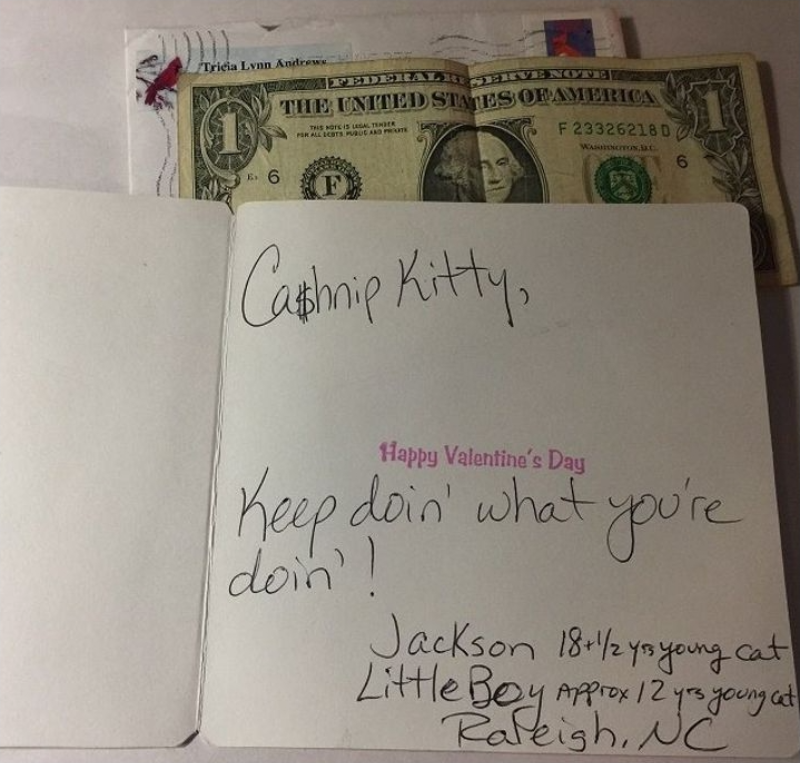 Tricia Lynn Andrews
FEDERAL RESERVE NOTE
THE UNITED STATES OF AMERICA
THIS NOTE IS LEGAL TENDER
FOR ALL DEBTS, PUBLIC AND PRIVATE
F 23326218 D
WASHINGTON, D.C.
1
1
6
6
F
Ca$hnip Kitty,
Happy Valentine's Day
Keep doin' what you're
doin'!
Jackson 18+1/2 yrs young cat
Little Boy Approx 12 yrs young cat
Raleigh, NC